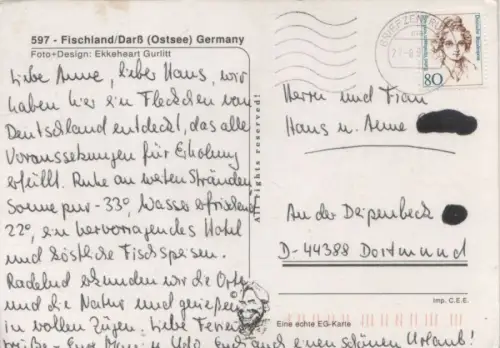 597 - Fischland/Darß (Ostsee) Germany
Foto+Design: Ekkeheart Gurlitt
Liebe Anne, lieber Hans, wir
haben hier ein Fleckchen von
Deutschland entdeckt, das alle
Voraussetzungen für Erholung
erfüllt. Ruhe an weiten Stränden,
Sonne pur - 33°, Wasser erfrischend
22°, ein hervorragendes Hotel
und köstliche Fischspeisen.
Radelnd erkunden wir die Orte
und die Natur und genießen
in vollen Zügen. Liebe Ferien
grüße - Eure und Udo. Euch auch einen schönen Urlaub!
All rights reserved!
BRIEFZENTRUM
Deutsche Bundespost
80
Herrn und Frau
Hans u. Anne
An der Deipenbeck
D-44388 Dortmund
Imp. C.E.E.
Eine echte EG-Karte